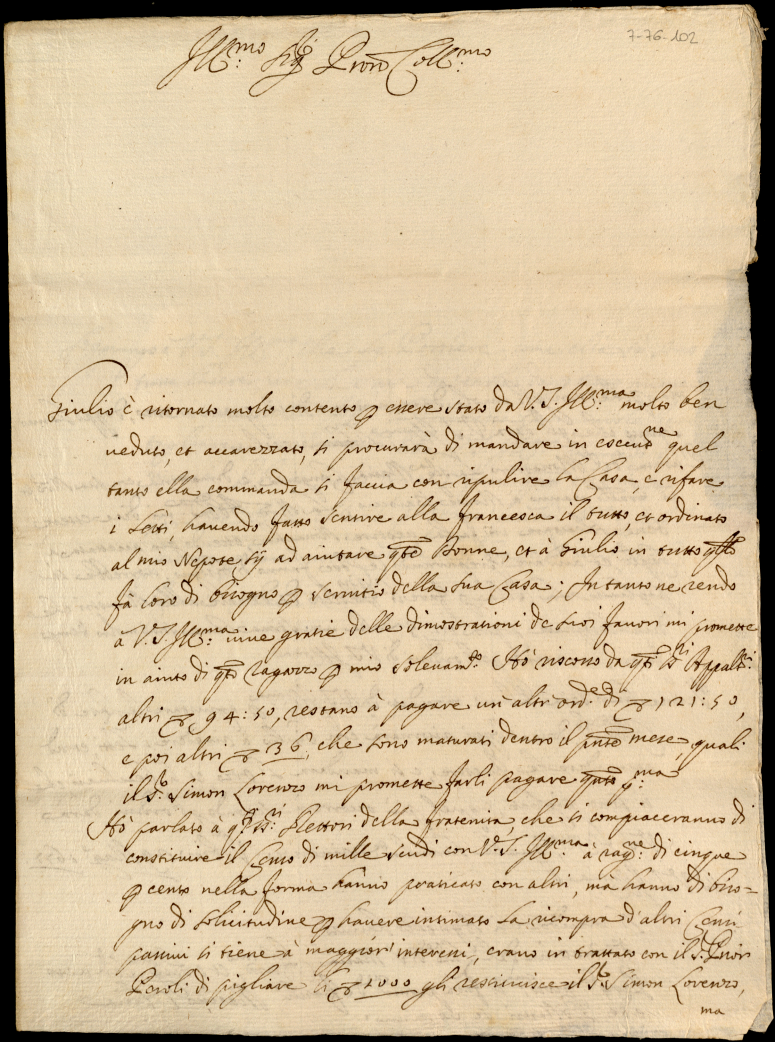 7-76-102
Ill:mo Sig Pron Coll:mo
Giulio è ritornato molto contento p essere stato da V.S. Ill:ma molto ben
veduto, et accarezzato, si procurarà di mandare in esecut:ne quel
tanto ella commanda si faccia con ripulire la Casa, e rifare
i Letti, havendo fatto sentire alla Francesca il tutto, et ordinato
al mio Nepote sij ad aiutare qste Donne, et à Giulio in tutto qllo
fà loro di bisogno p servitio della sua Casa; Intanto ne rendo
à V.S. Ill:ma vive gratie delle dimostrationi de suoi favori mi promette
in aiuto di qsto ragazzo p mio solevam:to Hò riscosso da qsti SS:ri Appalt:ri
altri 94:50, restano à pagare un' altr' ord:e di 121:50,
e poi altri 36, che sono maturati dentro il pnte mese, quali
il S:r Simon Lorenzo mi promette farli pagare qnto p:ma
Hò parlato à qsti SS:ri Elettori della fratenita, che si compiaceranno di
constituire il Censo di mille scudi con V.S. Ill:ma à rag:ne di cinque
p cento nella forma hanno praticato con altri, mà hanno di biso=
gno di solicitudine p havere intimato la ricompra d'altri Censi
passivi si tiene à maggiori interessi, erano in trattato con il S. Prior
Peroli di pigliare li 1000 gli restituisce il S:r Simon Lorenzo,
ma